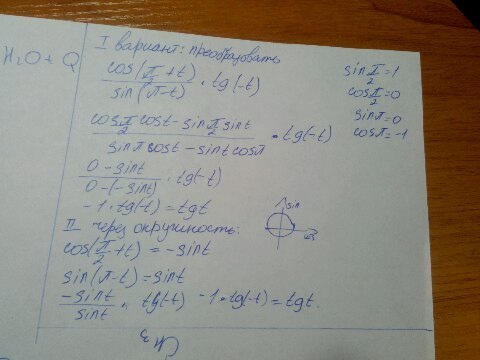 H₂O + Q
I вариант: преобразовать
cos(π/2 + t) / sin(π - t) · tg(-t)
sin π/2 = 1
cos π/2 = 0
sin π = 0
cos π = -1
cos π/2 cos t - sin π/2 sin t / sin π cos t - sin t cos π · tg(-t)
0 - sin t / 0 - (- sin t) · tg(-t)
-1 · tg(-t) = tg t
II через окружность:
sin
cos(π/2 + t) = - sin t
sin(π - t) = sin t
- sin t / sin t · tg(-t) -1 · tg(-t) = tg t.
CH₃